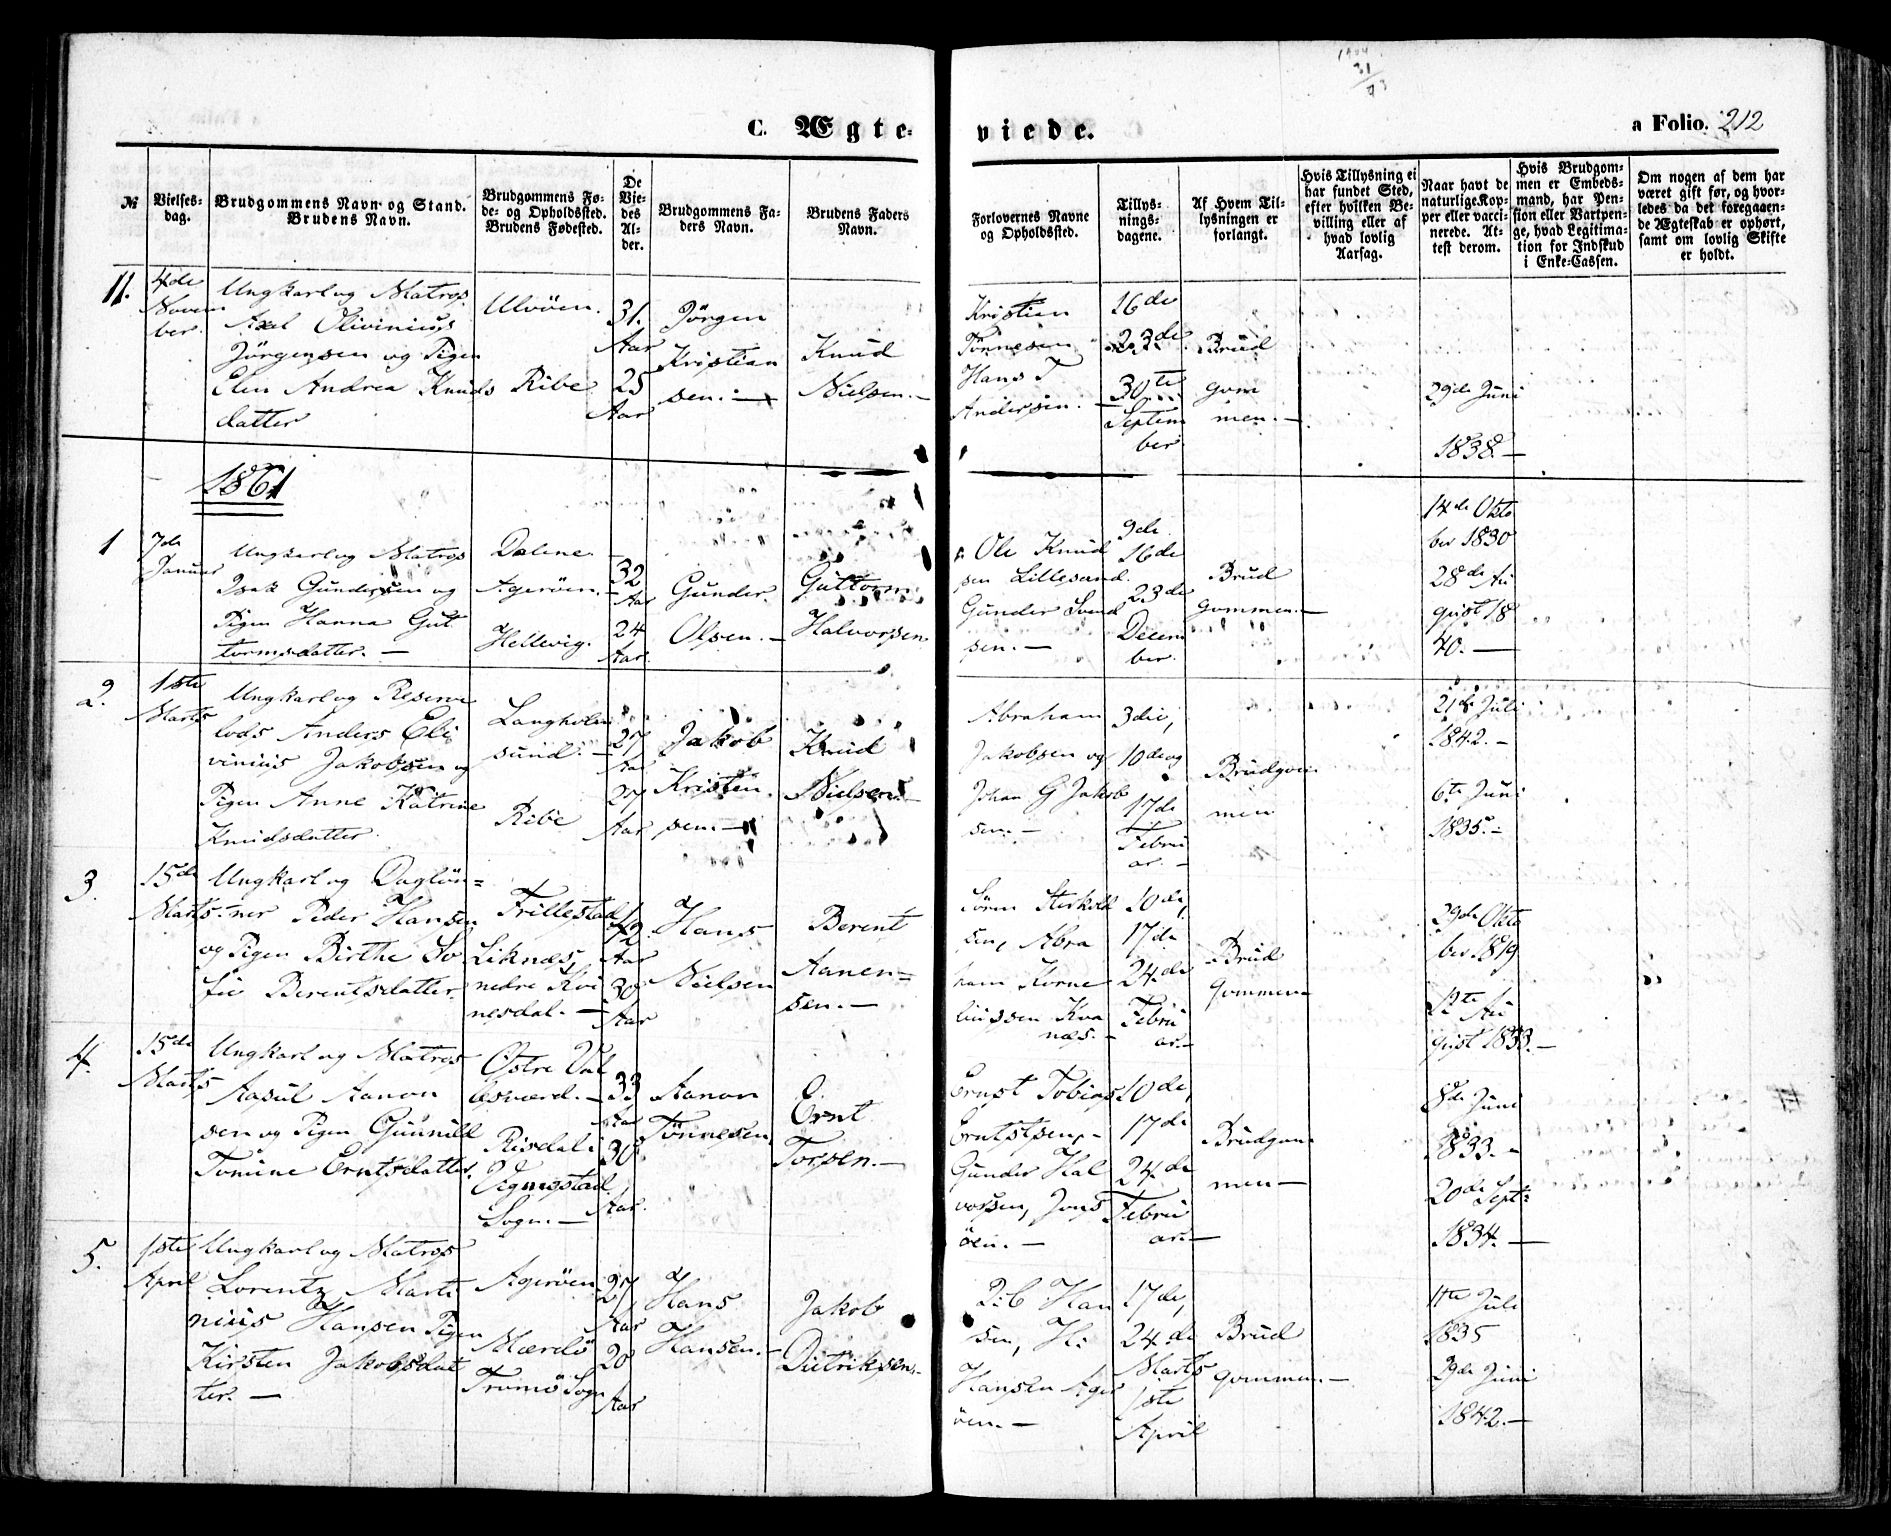 C. Ægte-
viede.
a Folio. 212
№
Vielses-
dag.
Brudgommens Navn og Stand.
Brudens Navn.
Brudgommens Fø-
de- og Opholdssted.
Brudens Fødested.
De
Vie-
des
Al-
der.
Brudgommens Fa-
ders Navn.
Brudens Faders
Navn.
Forlovernes Navne
og Opholdssted.
Tillys-
nings-
dagene.
Af Hvem Til-
lysningen er
forlangt.
Hvis Tillysning ei
har fundet Sted,
efter hvilken Be-
villing eller af
hvad lovlig
Aarsag.
Naar havt de
naturlige Kop-
per eller vacci-
nerede. At-
test derom.
Hvis Brudgom-
men er Embeds-
mand, har Pen-
sion eller Vartpen-
ge, hvad Legitima-
tion for Indskud
i Enke-Cassen.
Om nogen af dem har
været gift før, og hvor-
ledes da det foregaaen-
de Ægteskab er ophørt,
samt om lovlig Skifte
er holdt.
11.
4de
Novem
ber.
Ungkarl og Matros
Axel Olivinius
Jörgensen og Pigen
Elen Andrea Knuds
datter
Ulvöen.
Ribe
31.
Aar
25
Aar
Jörgen
Kristian
sen. —
Knud
Nielsen. —
Kristian
Tönnesen
Hans T
Andersen. —
16de
23de
30te
Septem
ber
Brud
gom
men. —
29de Juni
1838. —
1861
1
7de
Januar
Ungkarl og Matros
Isak Gundersen og
Pigen Hanna Gut
tormsdatter. —
Dalene
Agerøen. —
Hellevig.
32
Aar
24
Aar.
Gunder
Olsen. —
Guttorm
Halvorsen
Ole Knud
sen Lillesand.
Gunder Svend
sen. —
9de
16de
23de
Decem
ber.
Brud
gommen. —
14de Okto
ber 1830
28de Au
gust 18
40. —
2.
1ste
Marts
Ungkarl og Reserve
lods Anders Eli
vinius Jakobsen og
Pigen Anne Katrine
Knudsdatter.
Langholm
sund. —
Ribe
27
Aar
27
Aar
Jakob
Kristen
sen. —
Knud
Nielsen. —
Abraham
Jakobsen og
Johan G Jakob
sen. —
3die,
10de og
17de
Febru
ar. —
Brudgom
men
21de Juli
1842. —
6te Juni
1835. —
3.
15de
Marts.
Ungkarl og Daglön=
ner Peder Hansen
og Pigen Birthe So
fie Berentsdatter.
Frillestad
Liknæs,
nedre Kvi
nesdal. —
42
Aar
30
Aar
Hans
Nielsen
Berent
Aanen=
sen. —
Sören
sen, Abra
ham Korne
liussen Kva
næs. —
10de,
17de
24de
Febru
ar. —
Brud
gommen
29de Okto
ber 1819
12te Au
gust 1833. —
4.
15de
Marts
Ungkarl og Matros
Aasul Aanon
sen og Pigen Gunnild
Tomine Erntsdatter.
Östre Val
esværd. —
Risdal i
Vegusstad
Sogn. —
33
Aar
30
Aar.
Aanon
Tönnesen
Ernt
Torsen. —
Ernst Tobias
Erntstsen, —
Gunder Hal
vorsen, Jons
öen. —
10de,
17de
24de
Febru
ar. —
Brudgom
men —
8de Juni
1833. —
20de Sept:
1834. —
5.
1ste
April
Ungkarl og Matros
Lorentz Marti
nius Hansen Pigen
Kirsten Jakobsdat
ter. —
Agerøen
Mærdö
Tromö Sogn
27
Aar
20
Aar
Hans
Hansen. —
Jakob
Dietriksen.
Han
sen, H:
Hansen Ager
öen. —
17de,
24de
Marts
1ste
April
Brud
gommen. —
11te Juli
1835
29de Juni
1842. —